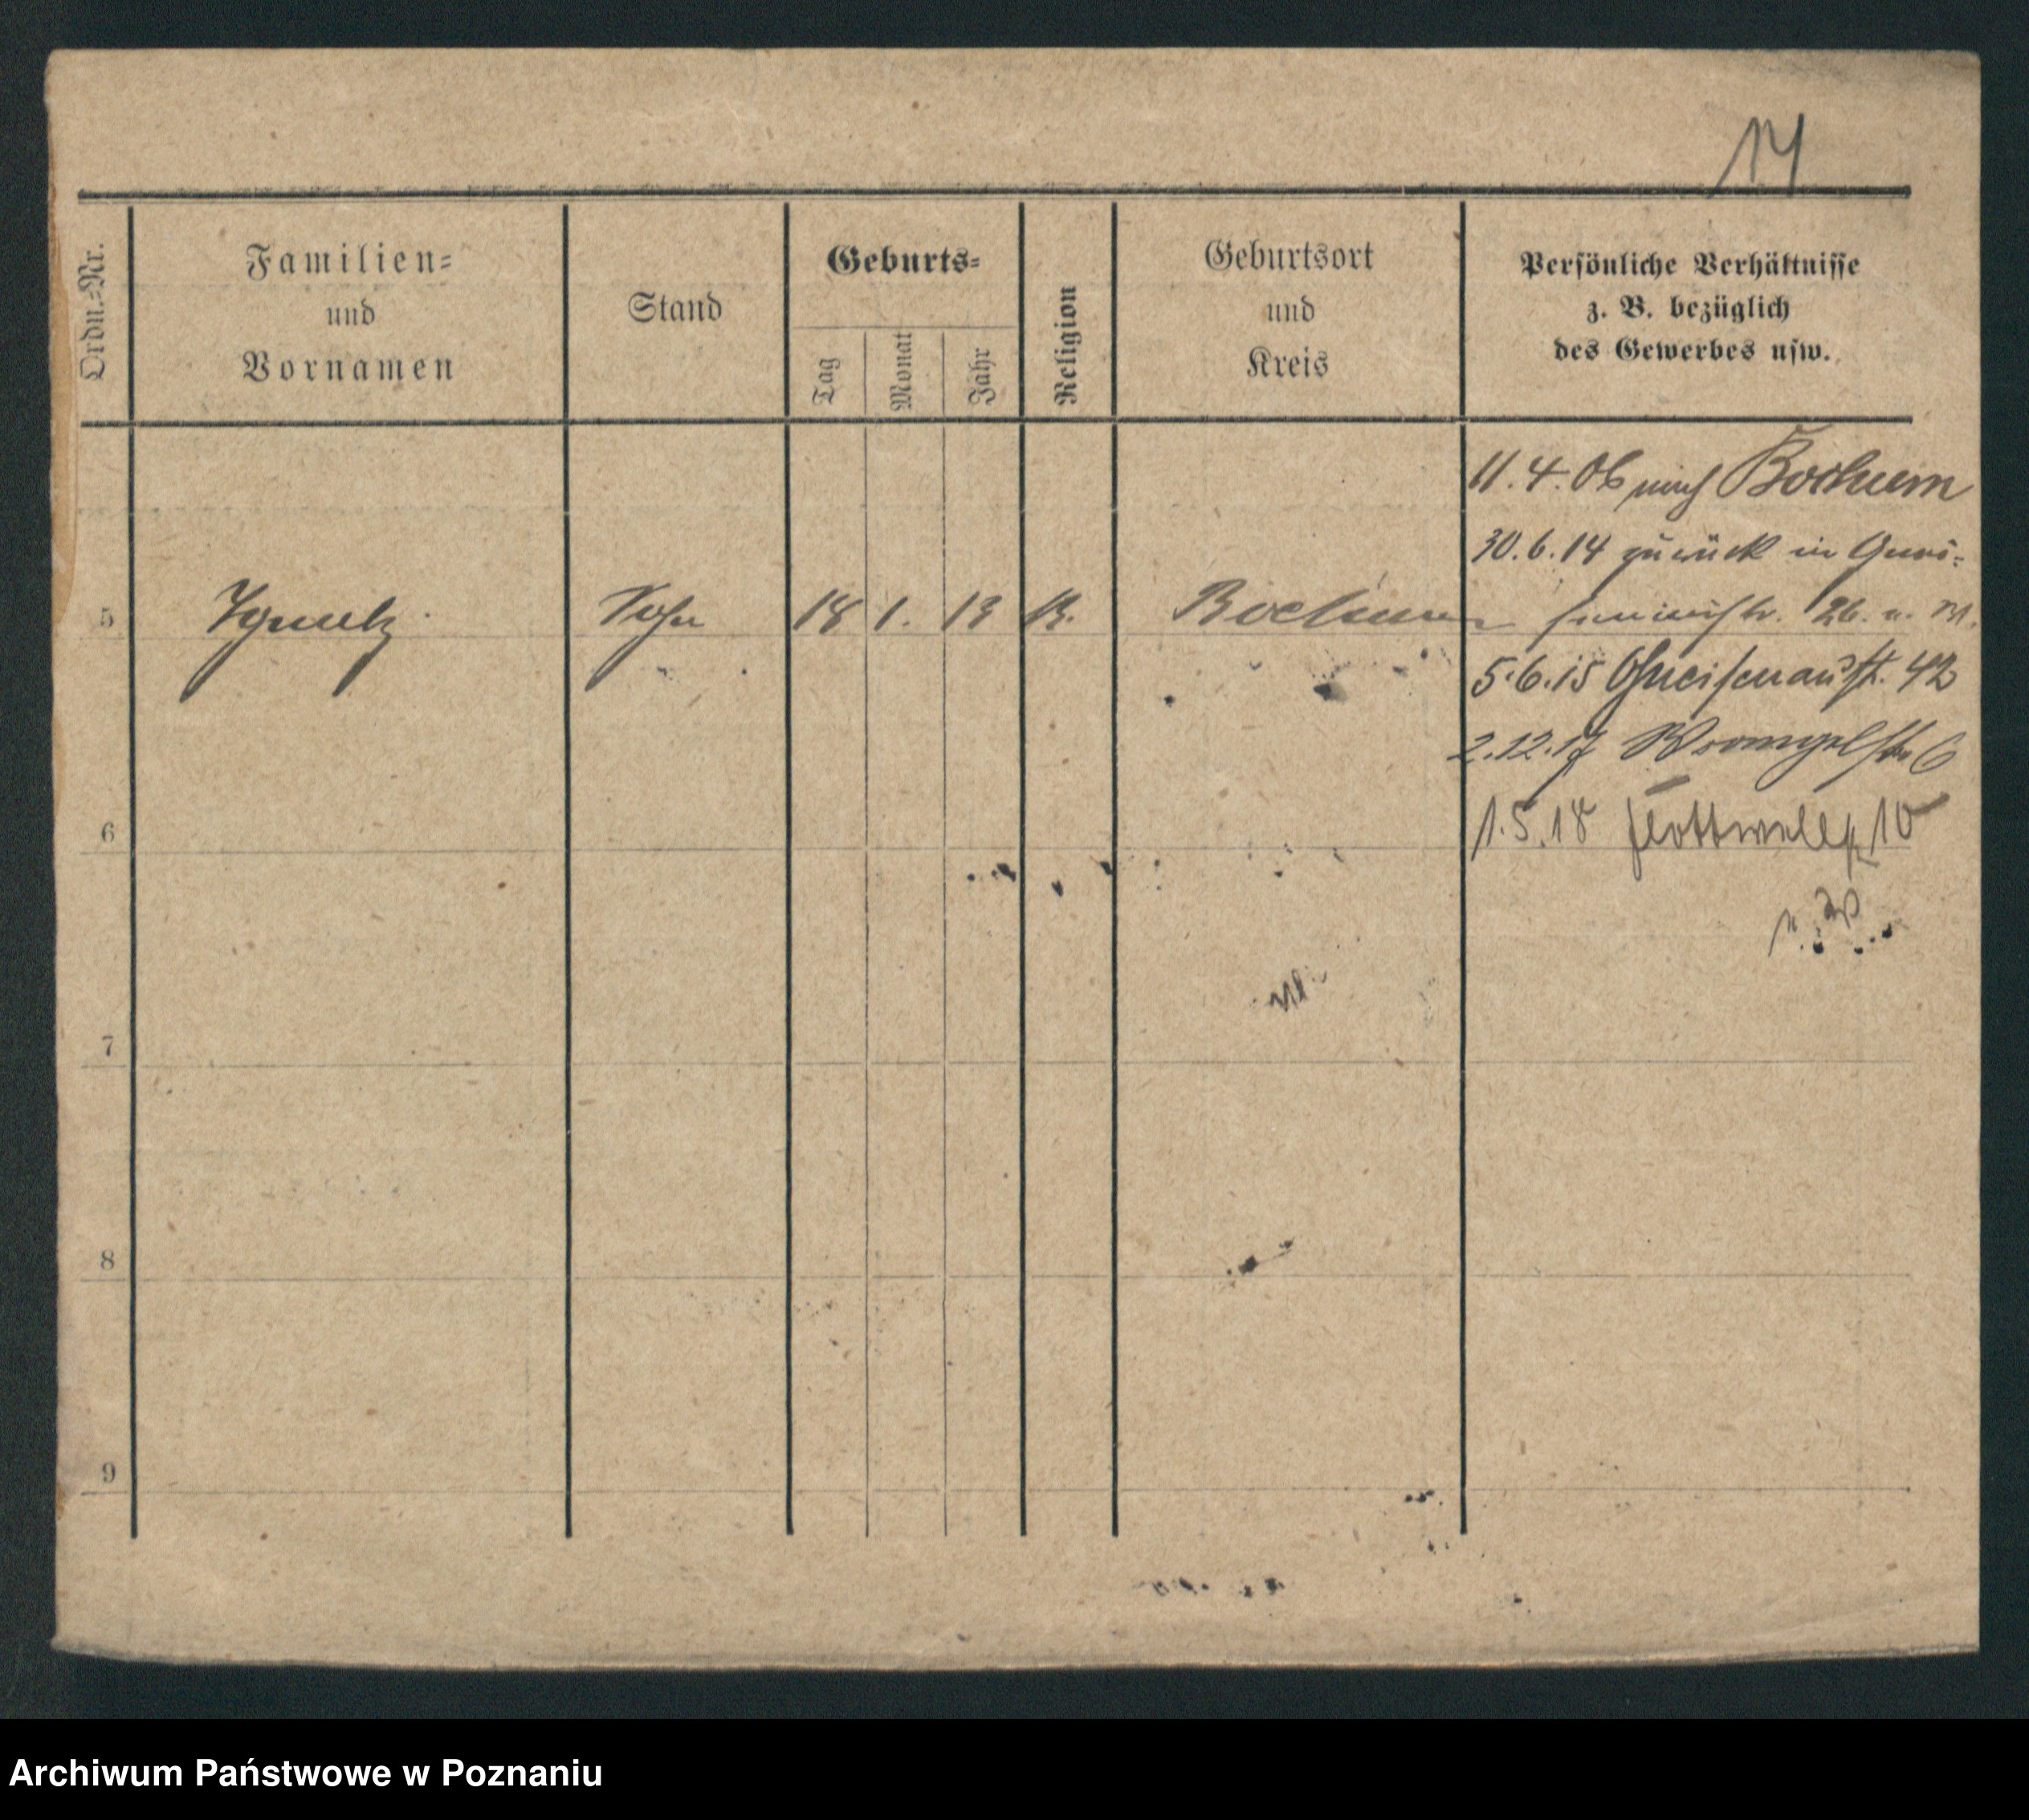 14
Ordn.-Nr.
Familien-
und
Vornamen
Stand
Geburts-
Tag
Monat
Jahr
Religion
Geburtsort
und
Kreis
Persönliche Verhältnisse
z. B. bezüglich
des Gewerbes usw.
11.4.06 nach Bochum
30.6.14 zurück in Gnei-
senaustr. 26.
5 Ignatz Sohn 18 1. 13 K. Bochum
5.6.15 Gneisenaustr. 42
2.12.17 Wrangelstr. 6
6
1.5.18 Flottwellstr 10
7
8
9
Archiwum Państwowe w Poznaniu